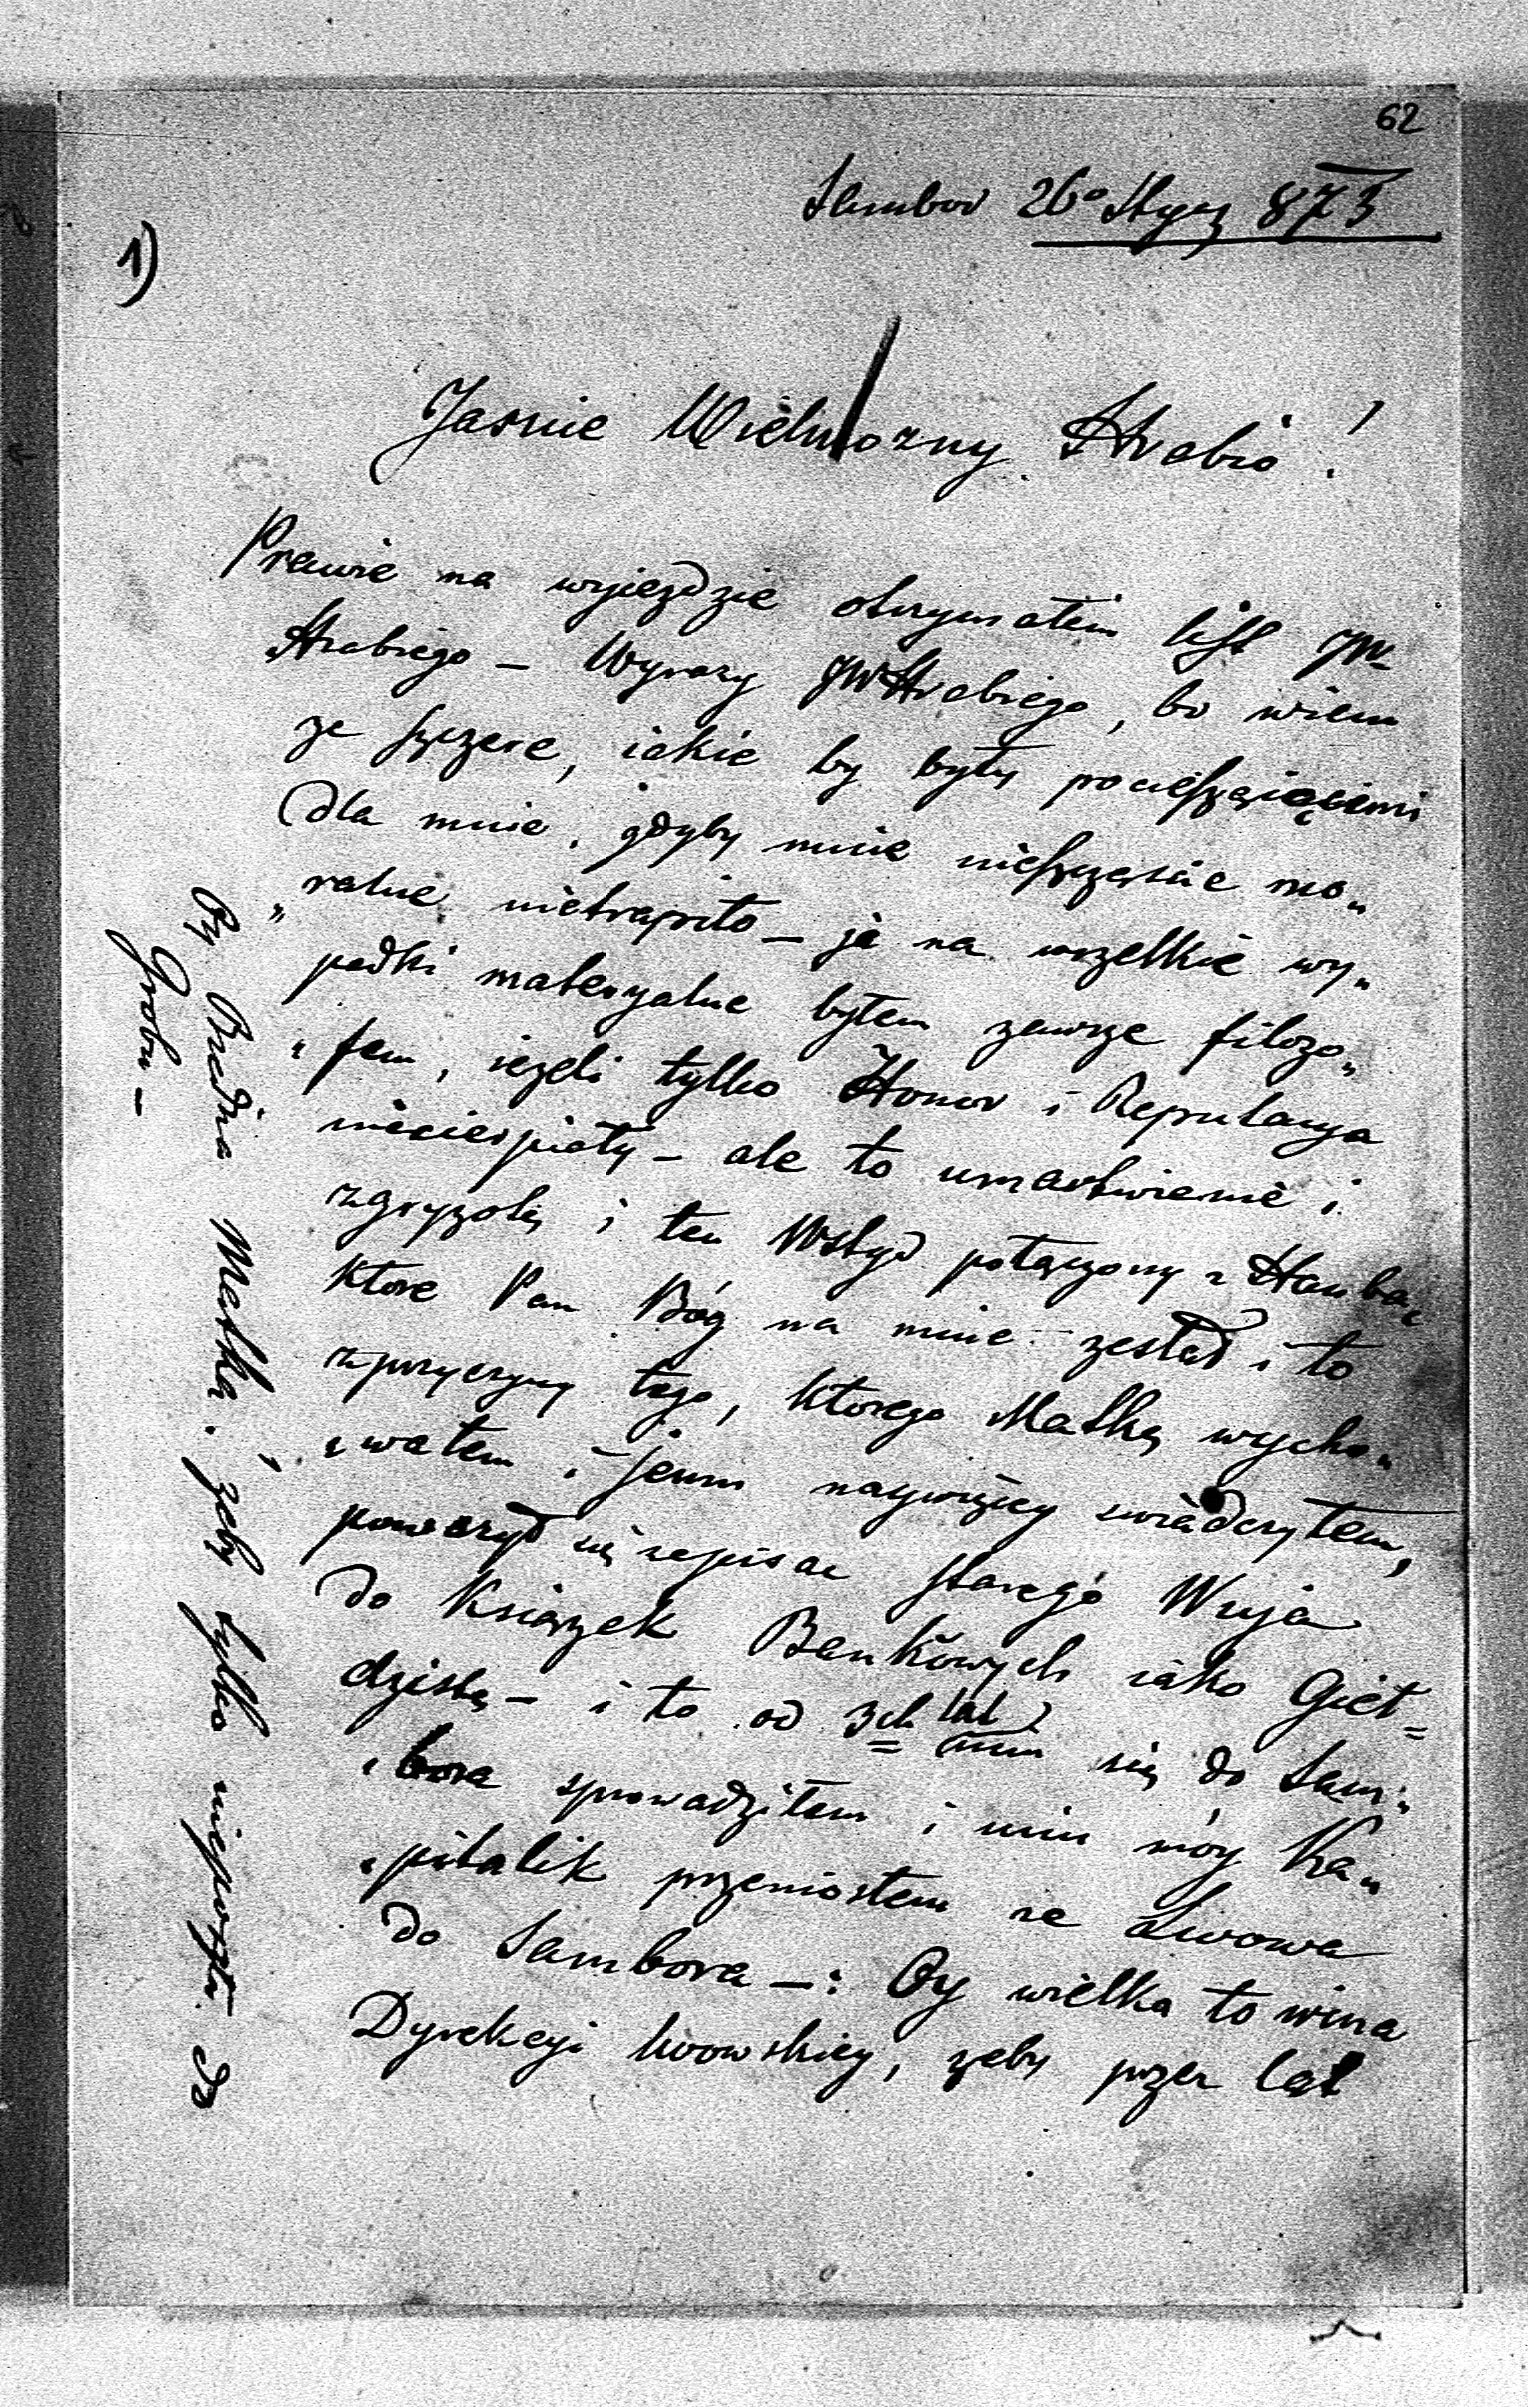 62
Sambor 26º Stycz 873
1)
Jasnie Wielmozny Hrabio!
Prawie na wyiezdzie otrzymałem list JW
Hrabiego – Wyrazy JWHrabiego, bo wiem
ze szczere, iakie by były pocieszaiącemi
dla mnie, gdyby mnie nieszczęscie mo„
„ralne nietrapiło – ja na wszelkie wy„
padki materyalne byłem zawsze filozo„
„fem, iezeli tylko Honor i Reputacya
niecierpiały – ale to umartwienie i
zgryzotę i ten Wstyd połączony z Hanbą
ktore Pan Bóg na mnie zesłał i to
z przyczyny tego, ktorego Matkę wycho„
„wałem i jemu naywięcey swiadczyłem,
powazył się wpisac starego Wuja
do Ksiązek Bankowych iako Gieł=
dzistę – i to od 3ch lat nim się do Sam„
„bora sprowadziłem i nim móy Ka„
„pitalik przeniosłem ze Lwowa
do Sambora –: Oy wielka to wina
Dyrekcyi lwowskiey, zeby przez lat
Oy Biedna Matka, zeby tylko nieposzła do
Grobu –